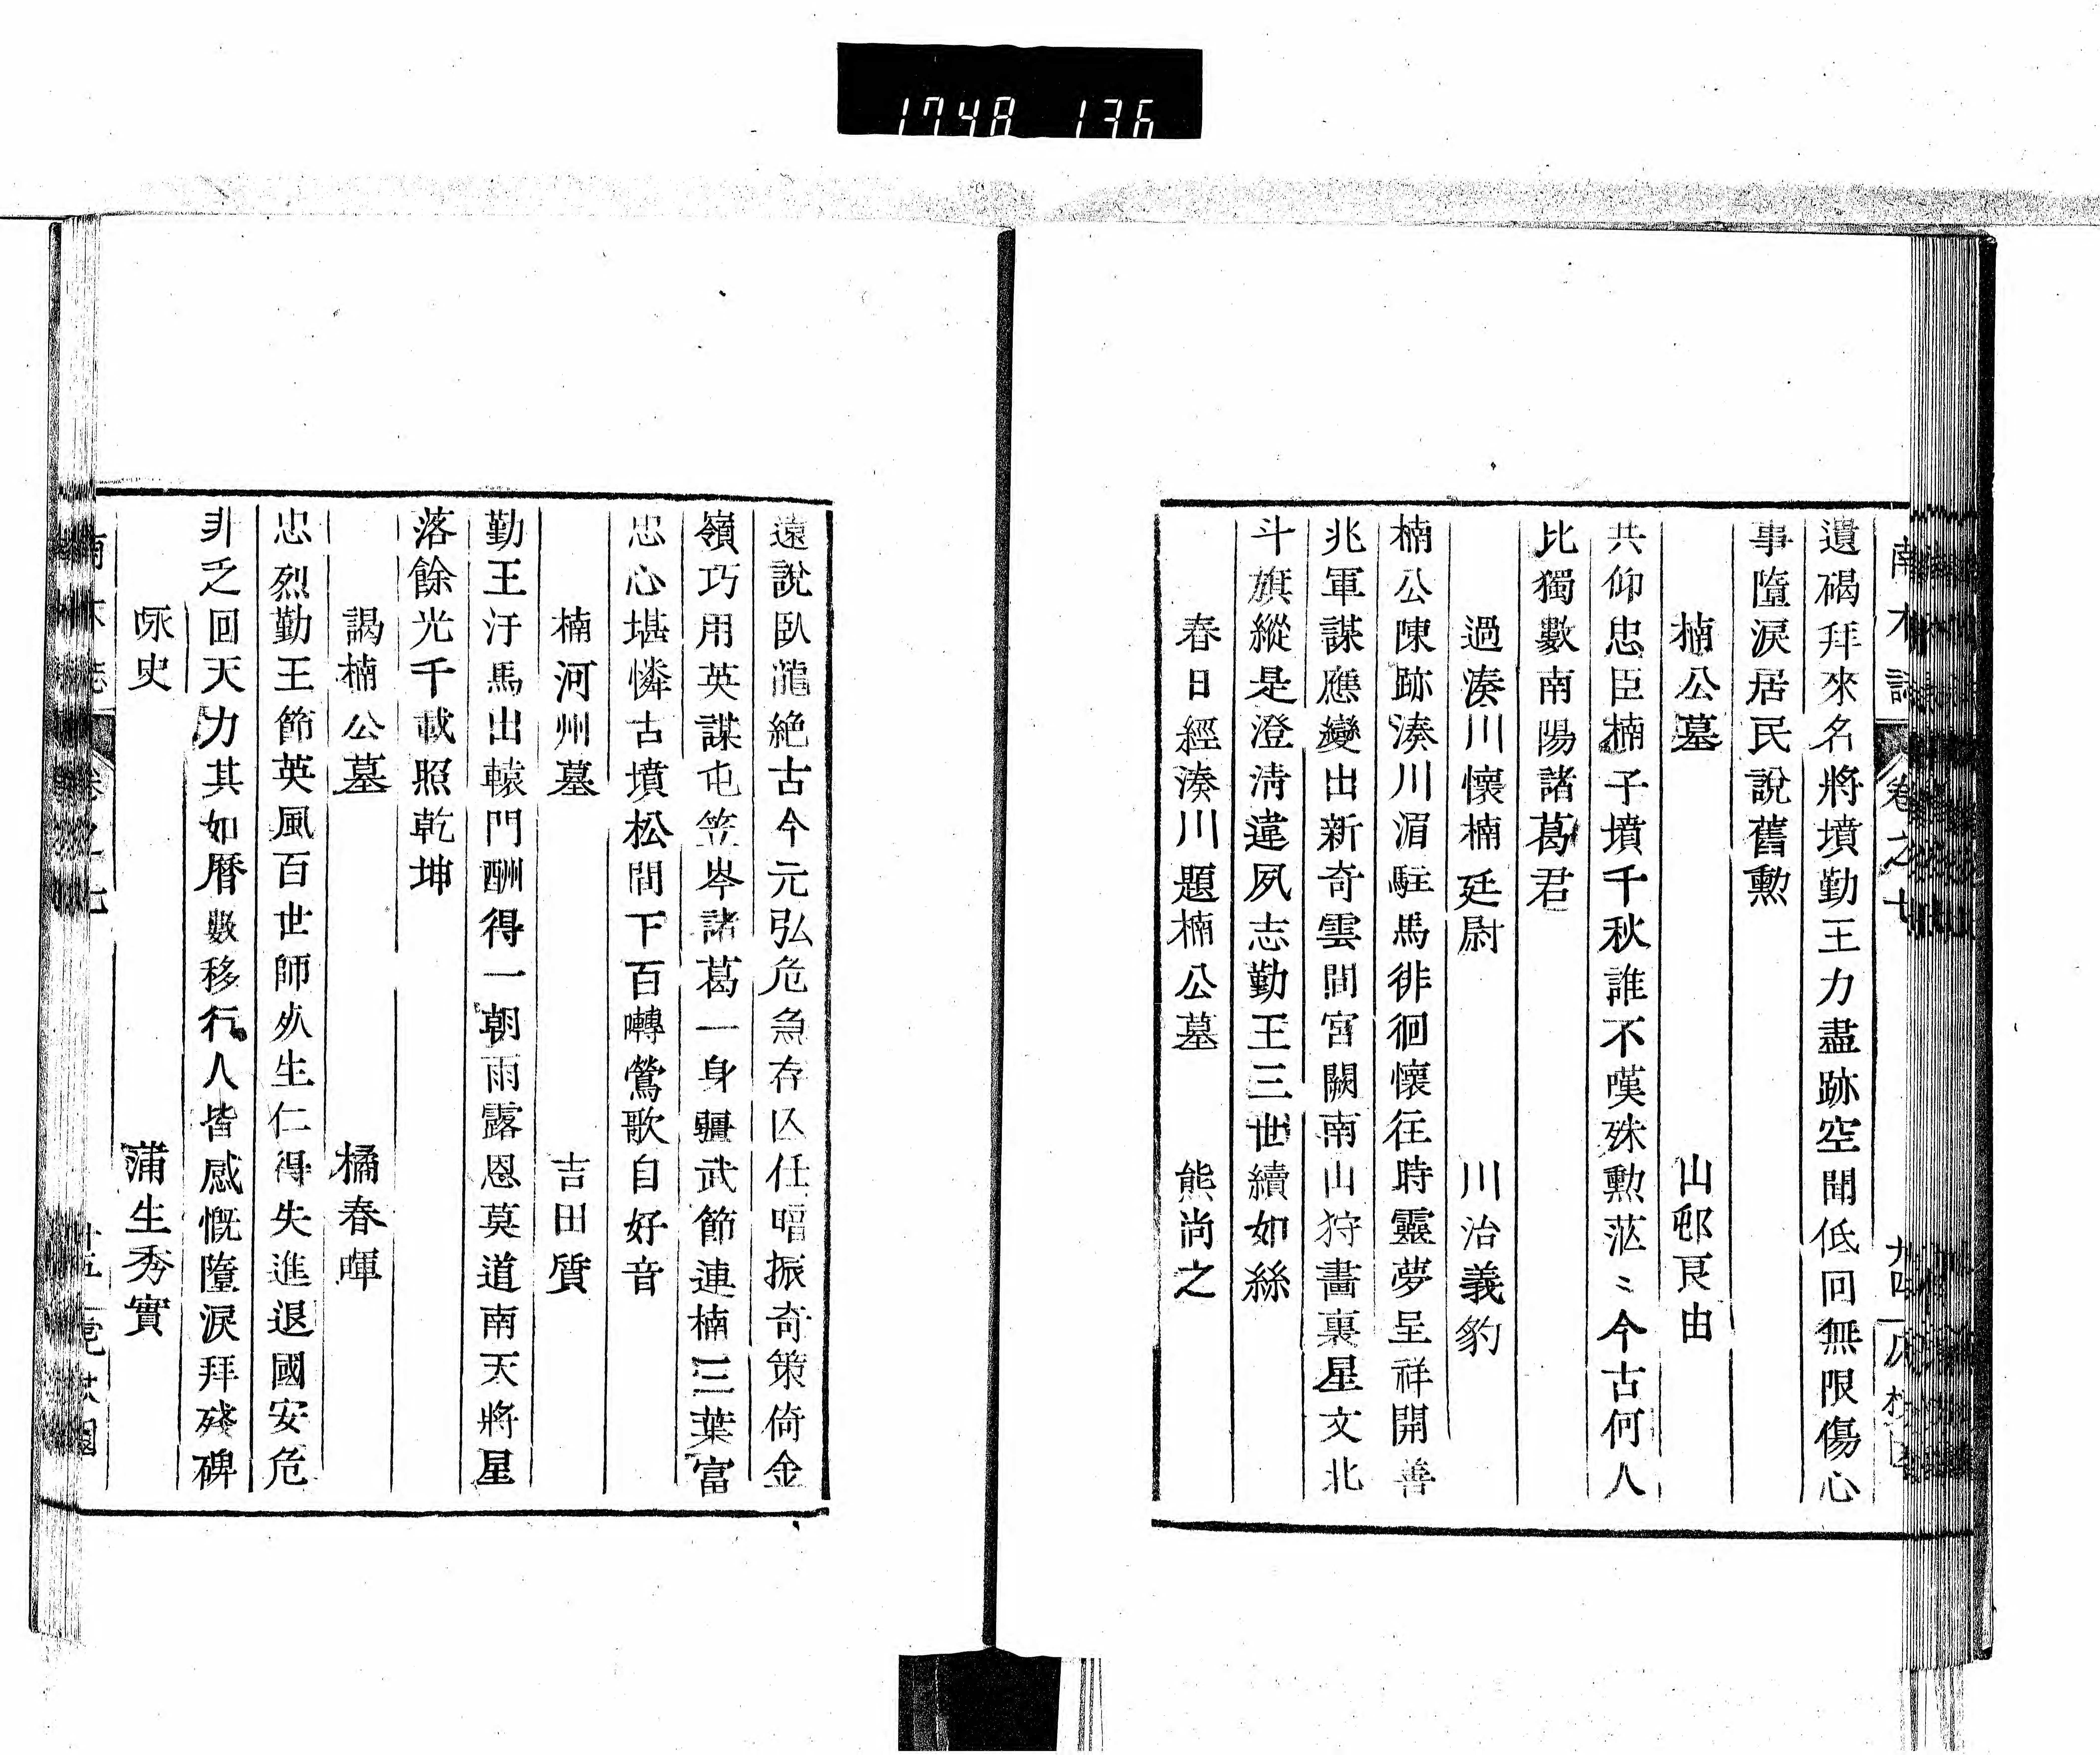 1748 136
南木誌 卷之七
遺碣拜來名將墳勤王力盡跡空聞低回無限傷心
事墮淚居民說舊勲
楠公墓 山邨良由
共仰忠臣楠子墳千秋誰不嘆殊勲茫〻今古何人
比獨數南陽諸葛君
過湊川懷楠廷尉 川治義豹
楠公陳跡湊川湄駐馬徘徊懷往時靈夢呈祥開善
兆軍謀應變出新奇雲間宮闕南山狩畵裏星文北
斗旗縱是澄淸違夙志勤王三世續如絲
春日經湊川題楠公墓 熊尚之
遠說臥龍絶古今元弘危急存亾任暗振奇策倚金
嶺巧用英謀屯笠岑諸葛一身疆武節連楠三葉富
忠心堪憐古墳松間下百囀鶯歌自好音
楠河州墓 吉田質
勤王汗馬出轅門酬得一朝雨露恩莫道南天將星
落餘光千載照乾坤
謁楠公墓 橘春暉
忠烈勤王節英風百世師㱔生仁得失進退國安危
非乏回天力其如曆數移行人皆感慨墮淚拜殘碑
咏史 蒲生秀實
南木誌 卷之七